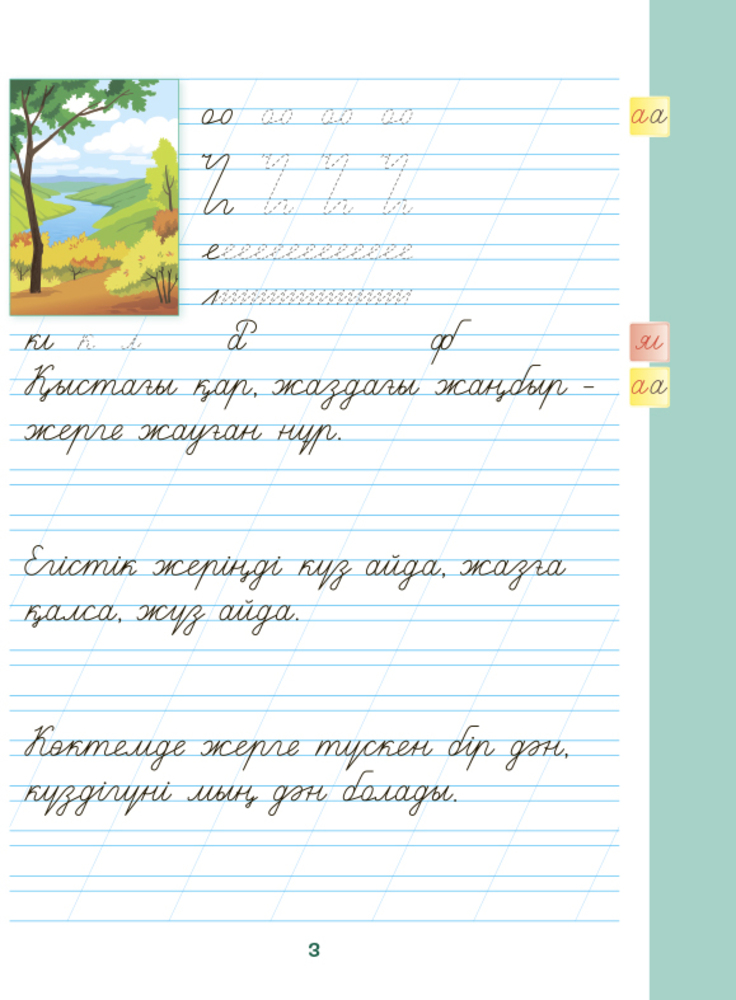 аа
кі
Қыстағы қар, жаздағы жаңбыр –
жерге жауған нұр.
аа
Егістік жеріңді күз айда, жазға
қалса, жүз айда.
Көктемде жерге түскен бір дән,
күздігүні мың дән болады.
3